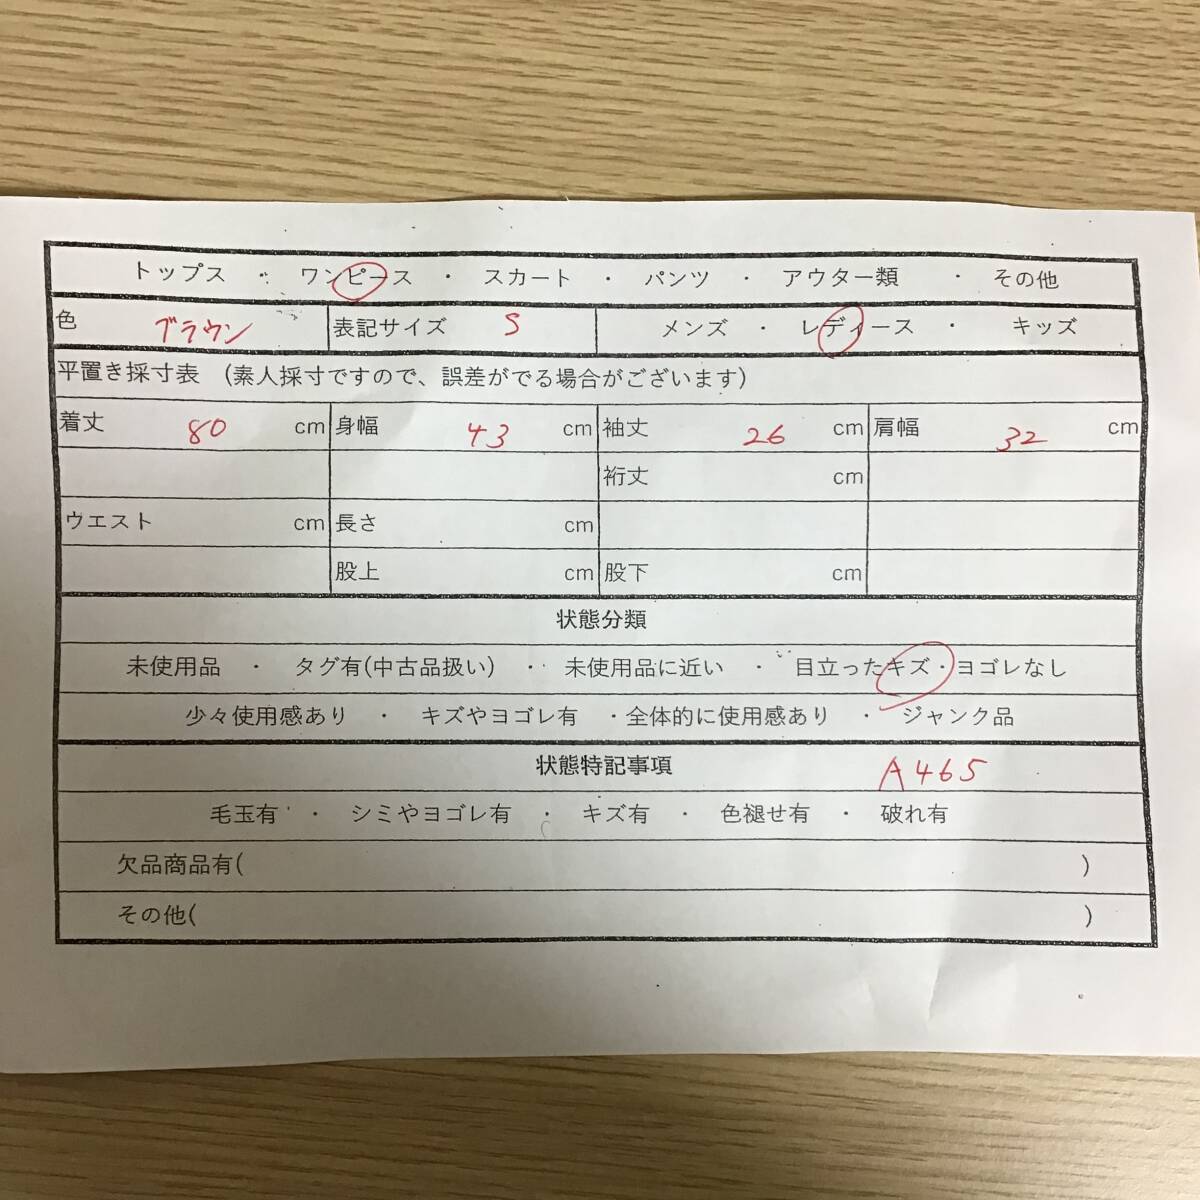 トップス ・ ワンピース ・ スカート ・ パンツ ・ アウター類 ・ その他
色 ブラウン 表記サイズ S メンズ ・ レディース ・ キッズ
平置き採寸表 (素人採寸ですので、誤差がでる場合がございます)
着丈 80 cm 身幅 43 cm 袖丈 26 cm 肩幅 32 cm
裄丈 cm
ウエスト cm 長さ cm
股上 cm 股下 cm
状態分類
未使用品 ・ タグ有(中古品扱い) ・ 未使用品に近い ・ 目立ったキズ・ヨゴレなし
少々使用感あり ・ キズやヨゴレ有 ・全体的に使用感あり ・ ジャンク品
状態特記事項 A465
毛玉有 ・ シミやヨゴレ有 ・ キズ有 ・ 色褪せ有 ・ 破れ有
欠品商品有( )
その他( )